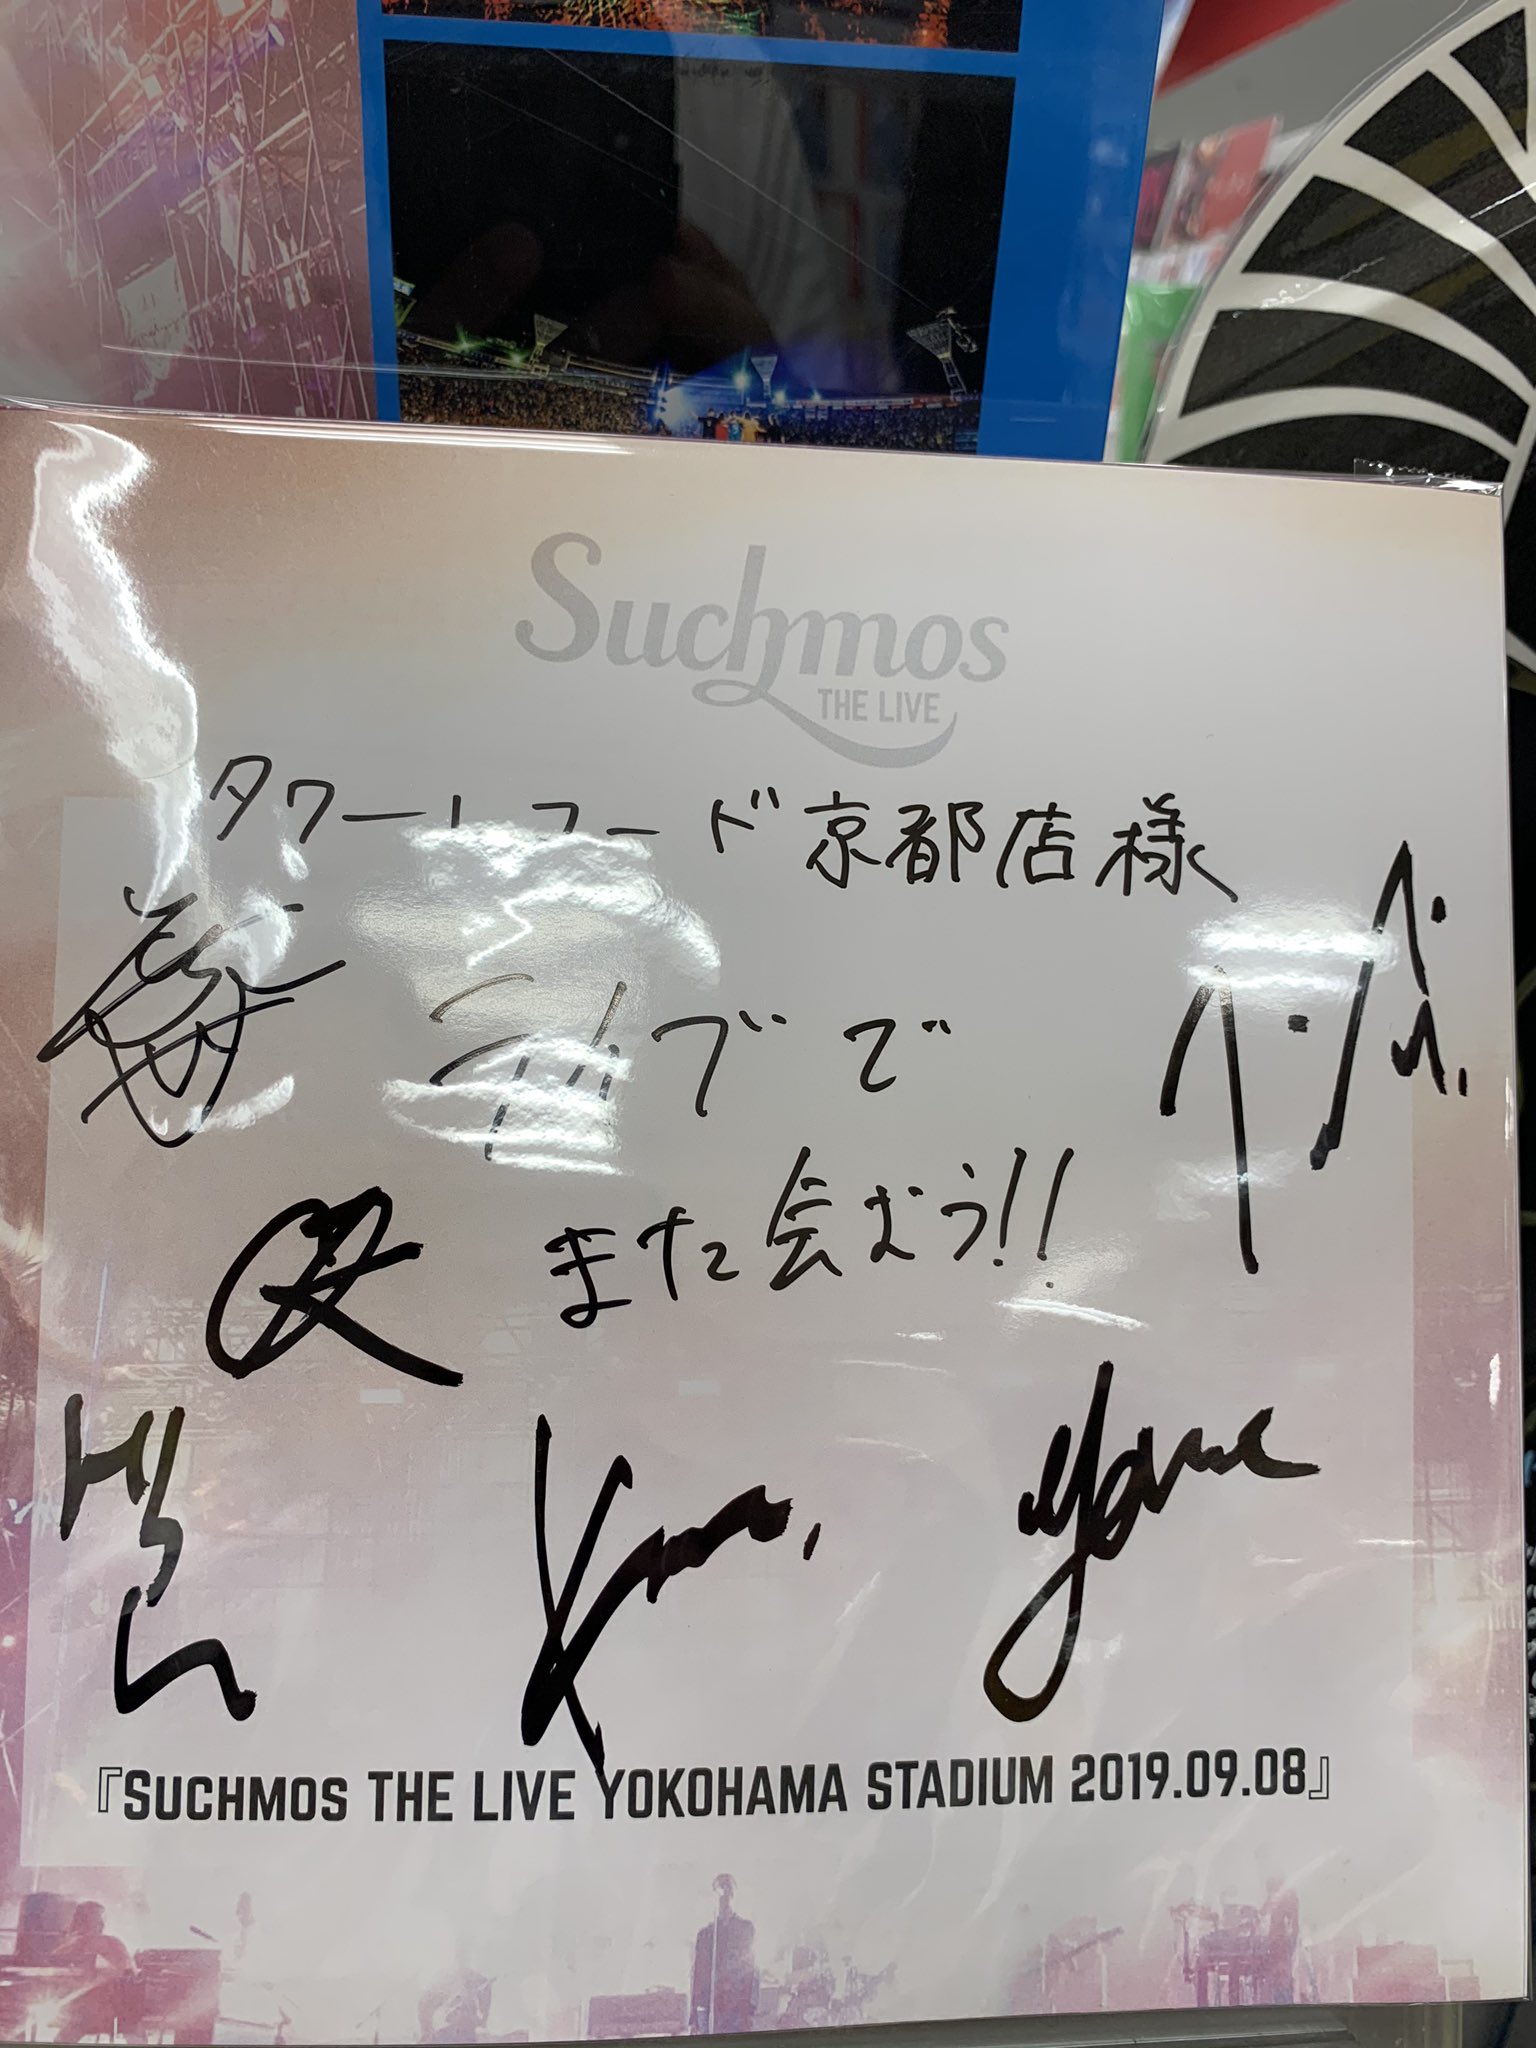 Suchmos
THE LIVE
タワーレコード京都店様
ライブで
また会おう!!
『SUCHMOS THE LIVE YOKOHAMA STADIUM 2019.09.08』